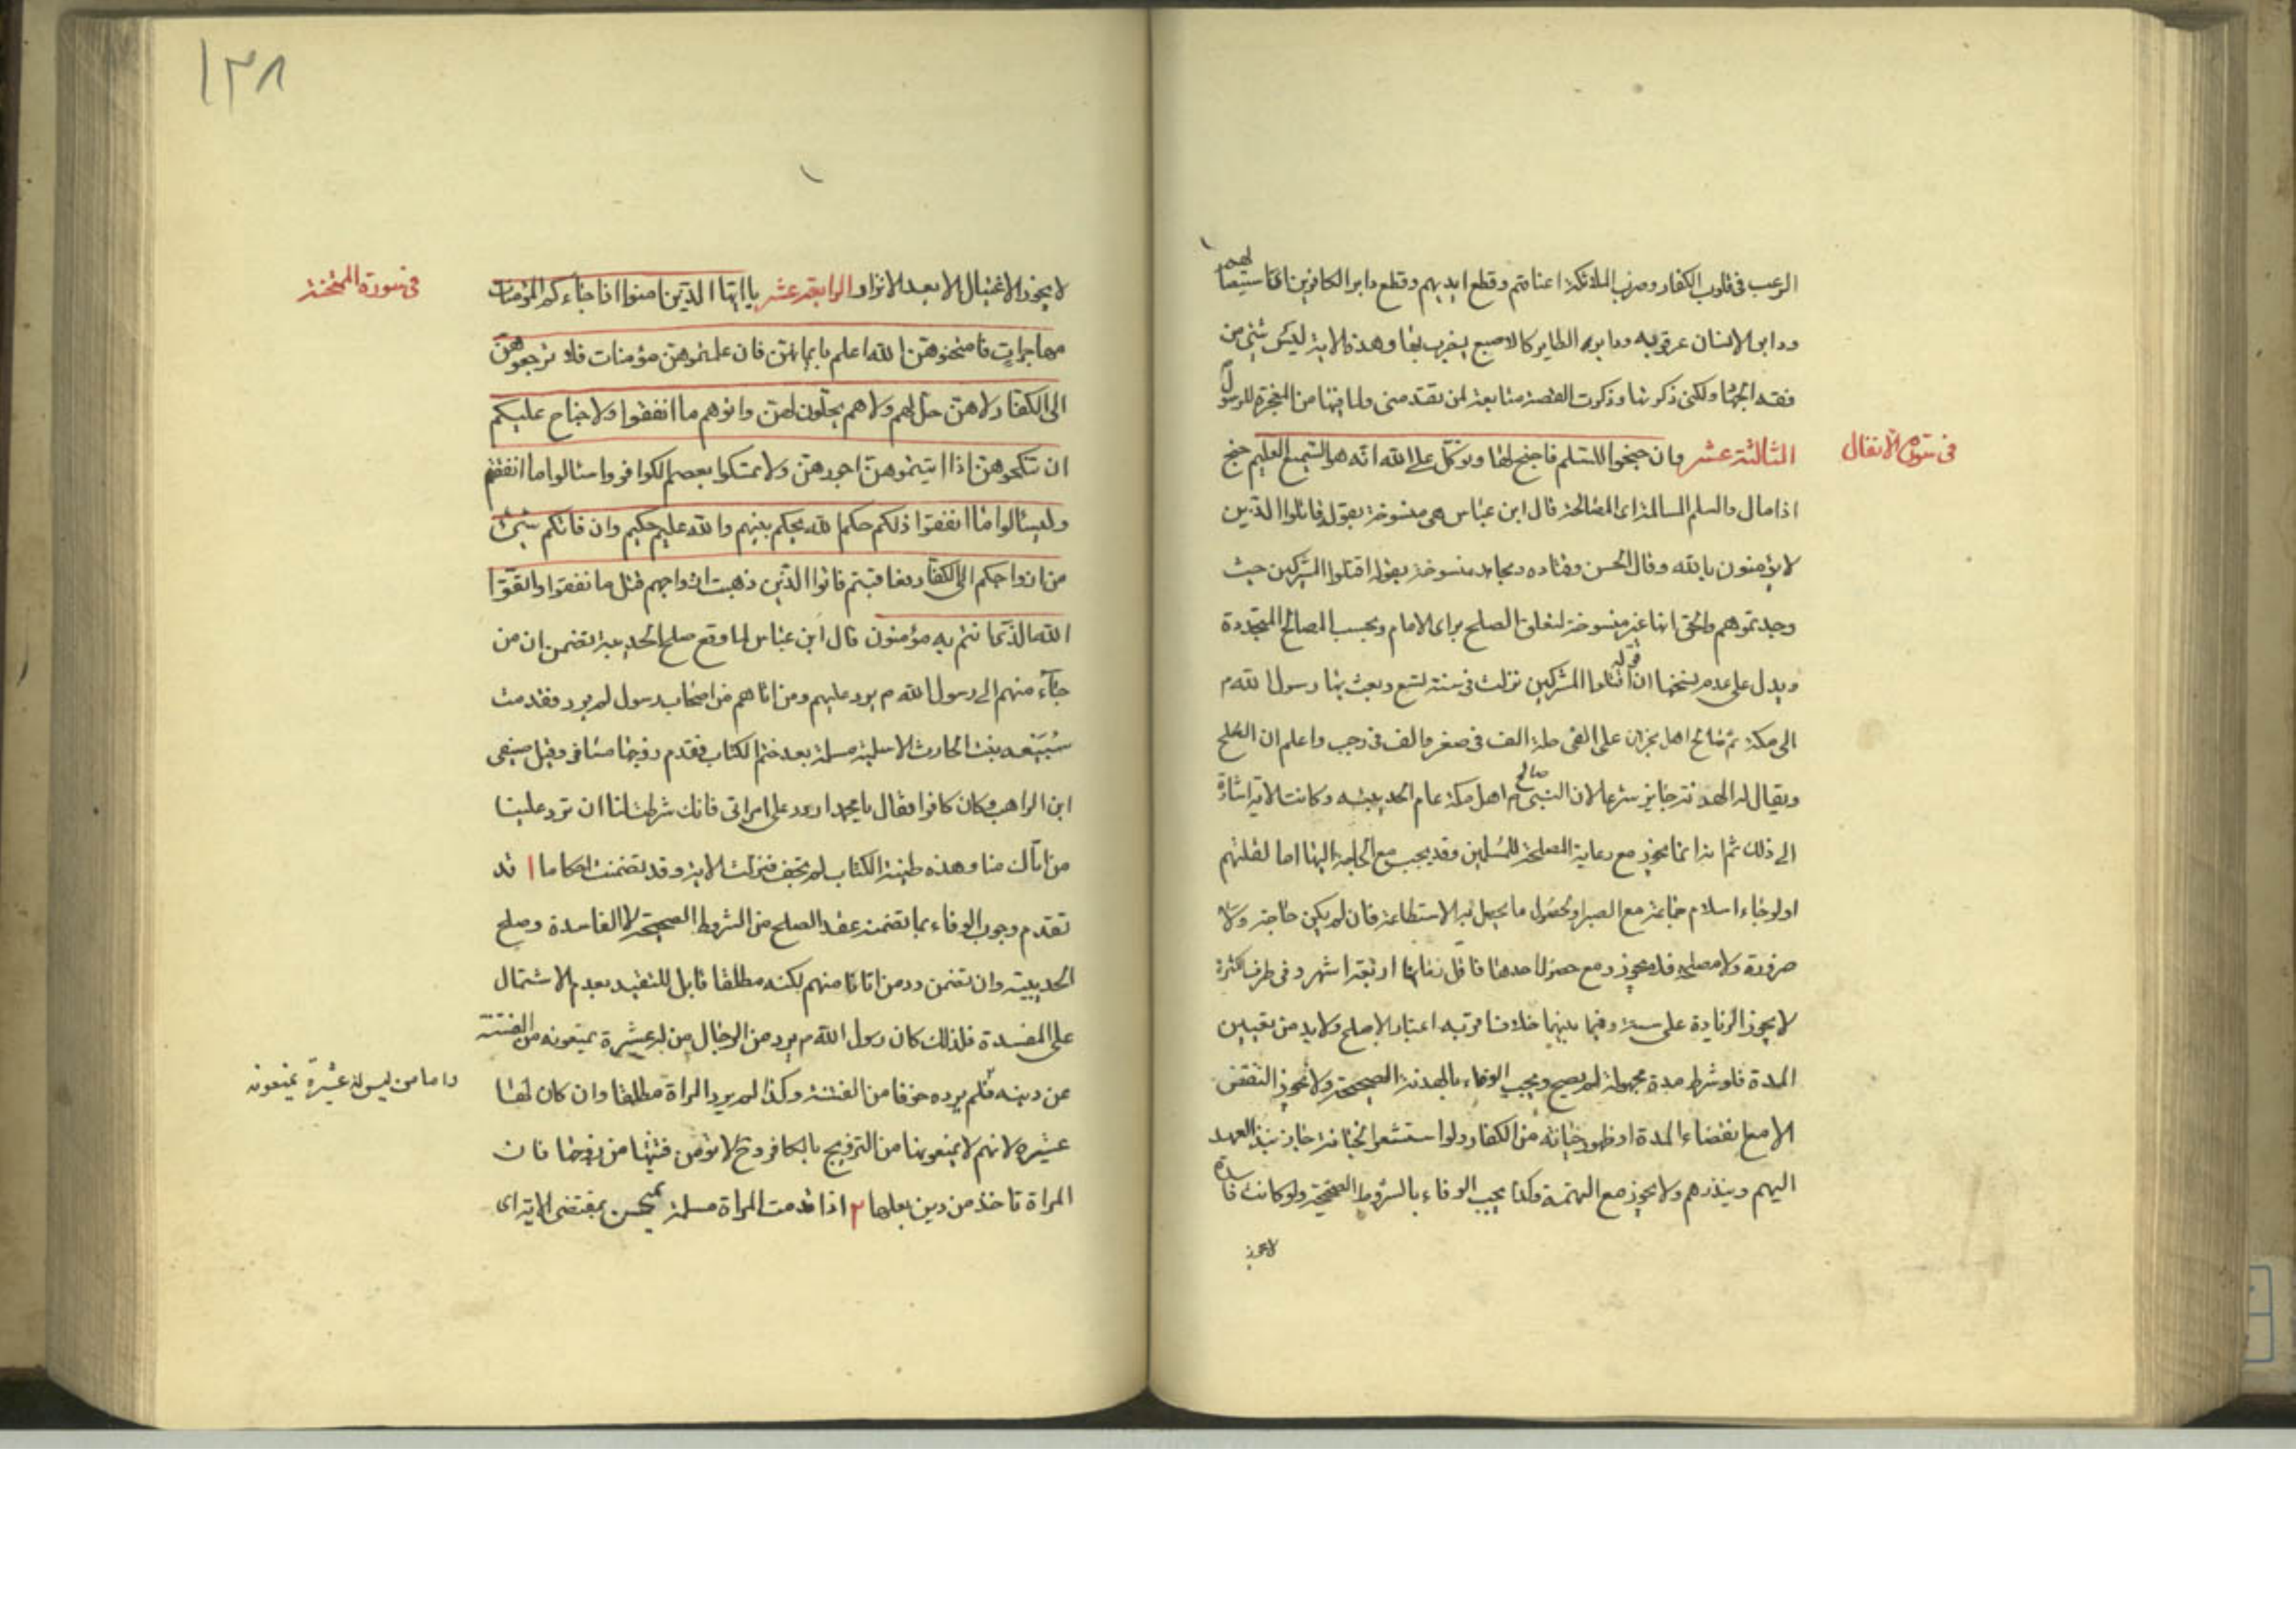 الرعب فى قلوب الكفار وضرب الملائكة اعناقهم وقطع ايديهم وقطع دابر الكافرين اى استيصالهم
ودابر الانسان عرقوبه ودابرة الطاير كالاصبع يضرب بها وهذه الاية ليس شئ من
فقه الجهاد لكنى ذكرتها وذكرت القصة متابعة لمن تقدمنى ولما فيها من المعجزة للرسول
فى سورة الانفال
الثالثة عشر وان جنحوا للسلم فاجنح لها وتوكل على الله انه هو السميع العليم جنح
اذا مال والسلم المسالمة اى المصالحة قال ابن عباس هى منسوخة بقوله قاتلوا الذين
لا يؤمنون بالله وقال الحسن وقتاده ومجاهد منسوخة بقوله اقتلوا المشركين حيث
وجدتموهم والحق انها غير منسوخة لتعلق الصلح براى الامام وبحسب المصالح المتجددة
ويدل على عدم نسخها ان قوله اقتلوا المشركين نزلت فى سنة تسع وبعث بها رسول الله م
الى مكة ثم صالح اهل نجران على الفى حلة الف فى صفر والف فى رجب واعلم ان الصلح
ويقال له الهدنة جايز شرعا لان النبى م صالح اهل مكة عام الحديبيه وكانت الاية اشارة
الى ذلك ثم انما يجوز مع رعاية المصلحة للمسلمين وقد يجب مع الحاجة اليها اما لقلتهم
او لرجاء اسلام جماعة مع الصبر او لحصول ما يحصل به الاستطاعة فان لم يكن حاجة ولا
ضرورة ولا مصلحة فلا يجوز ومع حصول احدها فاقل زمانها اربعة اشهر وفى طرف الكثرة
لا يجوز الزيادة على سنة وفيما بينهما خلاف اقربه اعتبار الاصلح ولا بد من تعيين
المدة فلو شرط مدة مجهولة لم يصح ويجب الوفاء بالهدنة الصحيحة ولا يجوز النقض
الا مع انقضاء المدة او ظهور خيانة من الكفار ولو استشعر الخيانة جاز نبذ العهد
اليهم وينذرهم ولا يجوز مع التهمة وكذا يجب الوفاء بالشروط الصحيحة ولو كانت فاسدة
لا يجوز
١٣٨
لا يجوز الاغتيال الا بعد الانزار الرابعة عشر يا ايها الذين امنوا اذا جاءكم المؤمنات
فى سورة الممتحنة
مهاجرات فامتحنوهن الله اعلم بايمانهن فان علمتموهن مؤمنات فلا ترجعوهن
الى الكفار لا هن حل لهم ولا هم يحلون لهن واتوهم ما انفقوا ولا جناح عليكم
ان تنكحوهن اذا اتيتموهن اجورهن ولا تمسكوا بعصم الكوافر واسئالوا ما انفقتم
وليسئالوا ما انفقوا ذلكم حكم الله يحكم بينهم والله عليم حكيم وان فاتكم شئ
من ازواجكم الى الكفار فعاقبتم فاتوا الذين ذهبت ازواجهم مثل ما انفقوا واتقوا
الله الذى انتم به مؤمنون قال ابن عباس لما وقع صلح الحديبية تضمن ان من
جاء منهم الى رسول الله م يرد عليهم ومن اتاهم من اصحاب رسول لم يرد فقدمت
سُبَيعه بنت الحارث الاسلمية مسلمة بعد ختم الكتاب فقدم زوجها مسافر وقيل صيفى
ابن الراهب وكان كافرا فقال يا محمد اردد على امراتى فانك شرطت لنا ان ترد علينا
من اتاك منا وهذه طينة الكتاب لم تجف فنزلت الاية وقد تضمنت احكاما ١ قد
تقدم وجوب الوفاء بما تضمنه عقد الصلح من الشروط الصحيحة لا الفاسدة وصلح
الحديبيه وان تضمن رد من اتانا منهم لكنه مطلقا قابل للتقييد بعدم الاشتمال
على المفسدة فلذلك كان رسول الله م يرد من الرجال من له عشيرة يمنعونه من الفتنة
عن دينه فلم يرده خوفا من الفتنة وكذا لم يرد المراة مطلقا وان كان لها
واما من ليس له عشيرة يمنعونه
عشيره لانهم لا يمنعونها من التزويج بالكافر وح لا تؤمن فتنتها من زوجها فان
المراة تاخذ من دين بعلها ٢ اذا قدمت المراة مسلمة تمتحن بمقتضى الاية اى